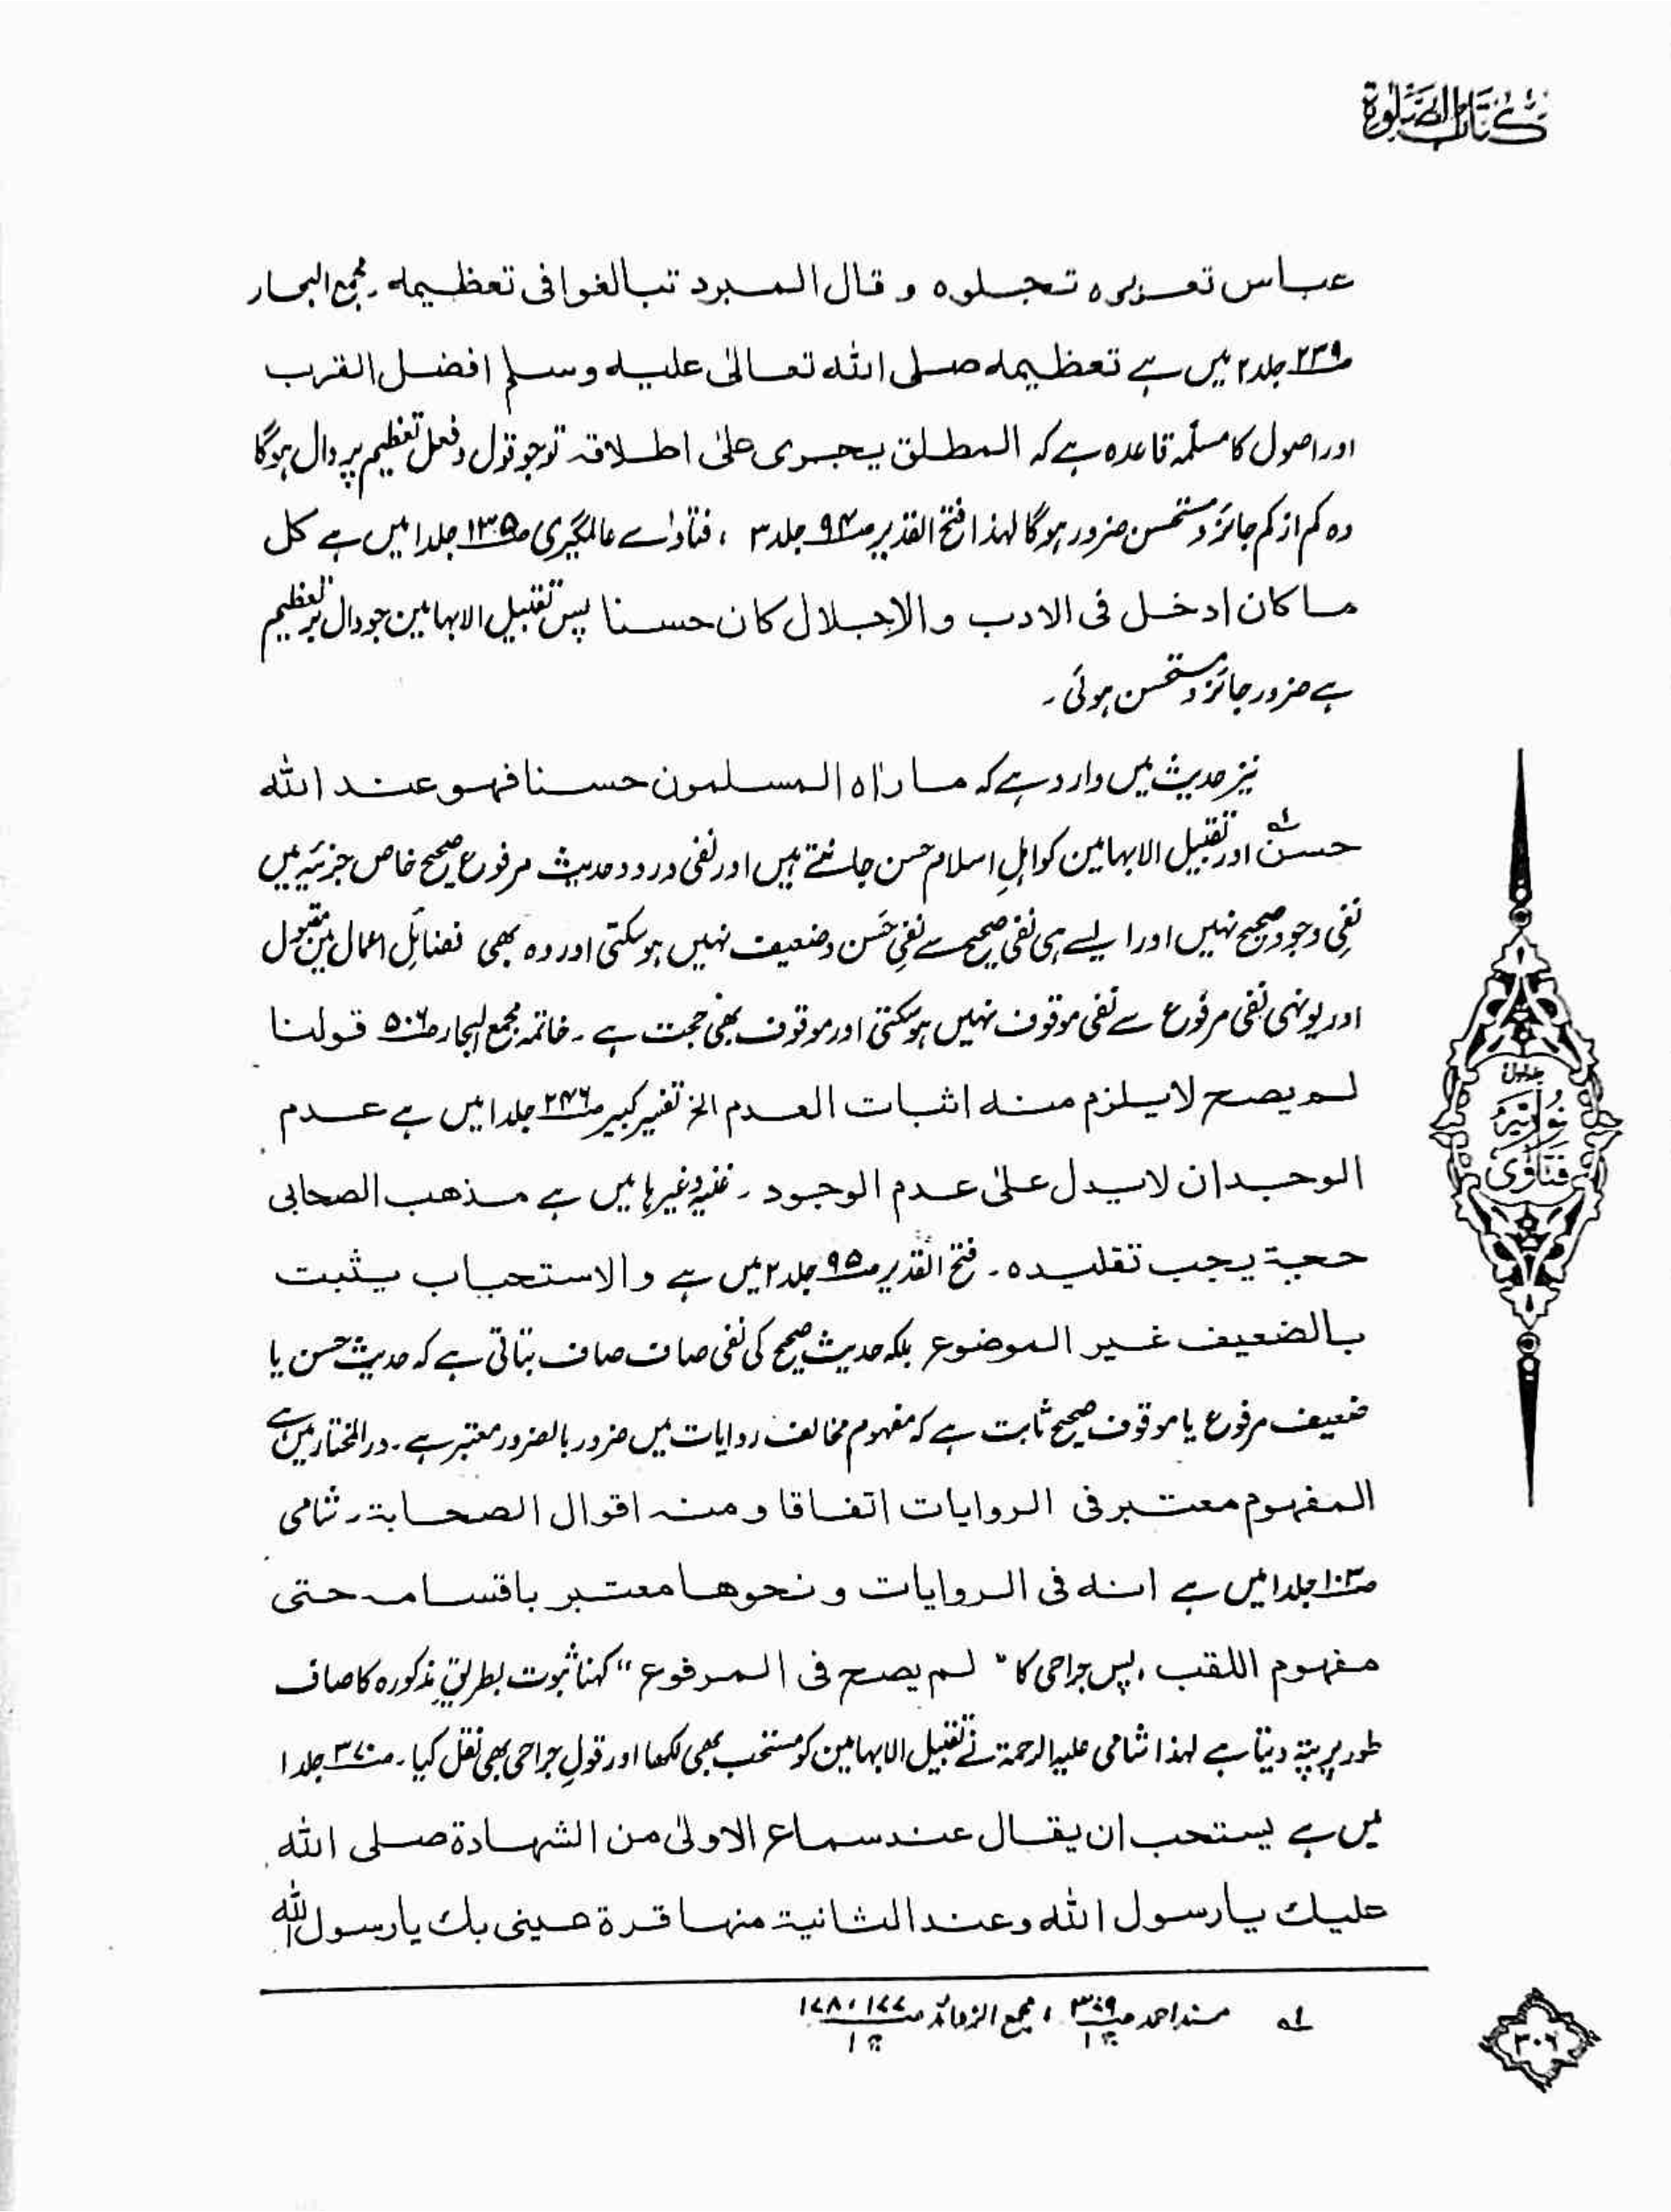 کتاب الصلوة
عباس تعزروہ تجلوہ و قال المبرد تبالغوا فی تعظیمہ۔ مجمع البحار
ص۲۳۹ جلد ۲ میں ہے تعظیمہ صلی اللہ تعالیٰ علیہ وسلم افضل القرب
اور اصول کا مسلّمہ قاعدہ ہے کہ المطلق یجری علیٰ اطلاقہ تو جو قول و فعل تعظیم پر دال ہوگا
وہ کم از کم جائز و مستحسن ضرور ہوگا لہذا فتح القدیر ص۹۴ جلد ۳ ، فتاوٰے عالمگیری ص۱۳۵ جلد ا میں ہے کل
ما کان ادخل فی الادب والاجلال کان حسنا پس تقبیل الابہامین جو دال بر تعظیم
ہے ضرور جائز و مستحسن ہوئی۔
نیز حدیث میں وارد ہے کہ ما راٰہ المسلمون حسنا فہو عند اللہ
حسن ۱ اور تقبیل الابہامین کو اہلِ اسلام حسن جانتے ہیں اور نفی ورود حدیث مرفوع صحیح خاص جزئیہ میں
نفیِ وجودِ صحیح نہیں اور ایسے ہی نفی صحیح سے نفیِ حَسن و ضعیف نہیں ہو سکتی اور وہ بھی فضائلِ اعمال میں مقبول
اور یونہی نفی مرفوع سے نفی موقوف نہیں ہو سکتی اور موقوف بھی حجت ہے۔ خاتمہ مجمع البحار ص۵۰۶ قولنا
لم یصح لا یلزم منہ اثبات العدم الخ تفسیر کبیر ص۲۴۶ جلد ا میں ہے عدم
الوجدان لا یدل علیٰ عدم الوجود۔ غنیہ وغیرہا میں ہے مذھب الصحابی
حجۃ یجب تقلیدہ۔ فتح القدیر ص۹۵ جلد ۲ میں ہے والاستحباب یثبت
بالضعیف غیر الموضوع بلکہ حدیث صحیح کی نفی صاف صاف بتاتی ہے کہ حدیث حسن یا
ضعیف مرفوع یا موقوف صحیح ثابت ہے کہ مفہوم مخالف روایات میں ضرور بالضرور معتبر ہے۔ درالمختار میں ہے
المفہوم معتبر فی الروایات اتفاقا ومنہ اقوال الصحابۃ۔ شامی
ص۱۰۳ جلد ا میں ہے انہ فی الروایات ونحوھا معتبر باقسامہ حتی
مفہوم اللقب، پس جراحی کا "لم یصح فی المرفوع" کہنا ثبوت بطریقِ مذکورہ کا صاف
طور پر پتہ دیتا ہے لہذا شامی علیہ الرحمۃ نے تقبیل الابہامین کو مستحب بھی لکھا اور قولِ جراحی بھی نقل کیا۔ ص۳۷۰ جلد ا
میں ہے یستحب ان یقال عند سماع الاولیٰ من الشہادۃ صلی اللہ
علیک یا رسول اللہ وعند الثانیۃ منہا قرۃ عینی بک یا رسول اللہ
فتاوٰی
نوریہ
جلد اول
۱ مسند احمد ص۳۷۹ ج ۱ ، مجمع الزوائد ص۱۷۷، ۱۷۸ ج ۱
۳۰۶